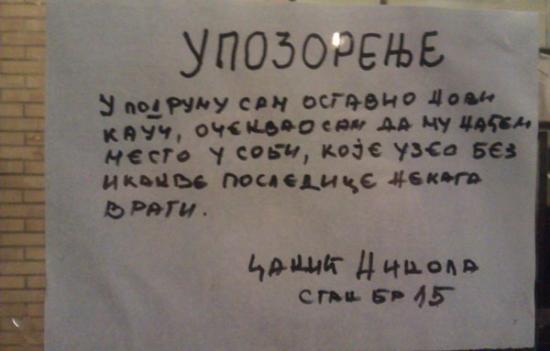 УПОЗОРЕЊЕ
У подруму сам оставио нови
кауч, очеквао сам да му нађем
место у соби, које узео без
икакве последице нека га
врати.
Цанић Никола
стан бр 15